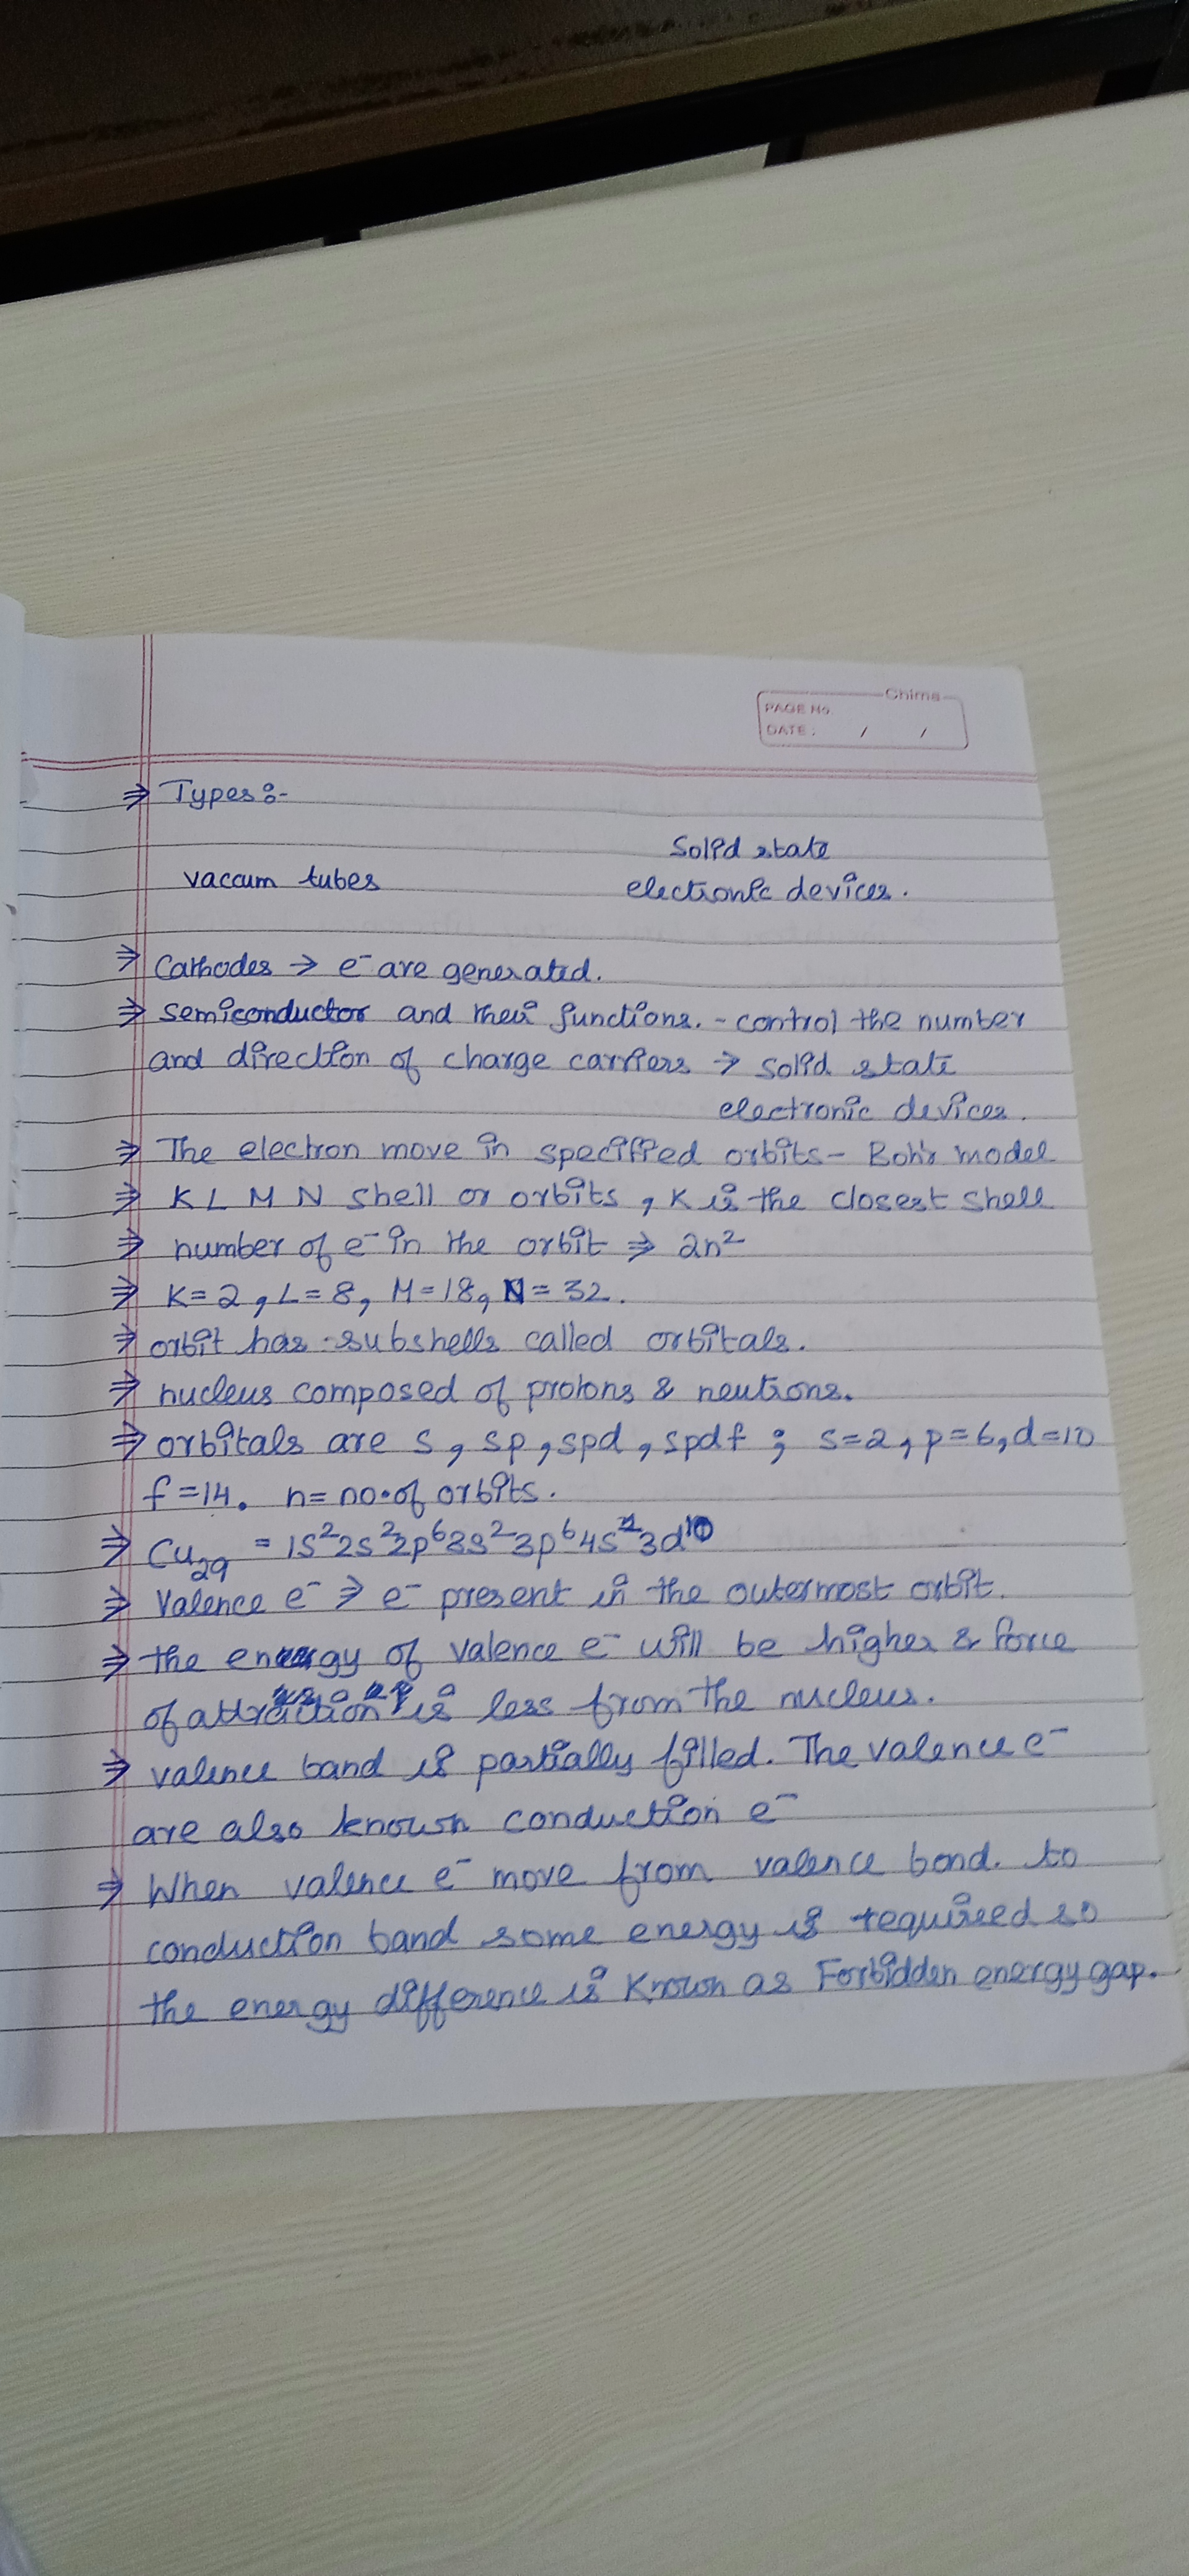 Chima
PAGE No.
DATE : / /
⇒ Types :-
Solid state
vaccum tubes electronic devices.
⇒ Cathodes → e⁻ are generated.
⇒ semiconductor and their functions. - control the number
and direction of charge carriers → solid state
electronic devices.
⇒ The electron move in specified orbits - Bohr's model
⇒ K L M N shell or orbits, K is the closest shell
⇒ number of e⁻ in the orbit ⇒ 2n²
⇒ K=2, L=8, M=18, N=32.
⇒ orbit has subshells called orbitals.
⇒ nucleus composed of protons & neutrons.
⇒ orbitals are s, sp, spd, spdf ; s=2, p=6, d=10
f=14. n= no. of orbits.
⇒ Cu₂₉ = 1s²2s²2p⁶3s²3p⁶4s¹3d¹⁰
⇒ Valence e⁻ ⇒ e⁻ present in the outermost orbit.
⇒ the energy of valence e⁻ will be higher & force
of attraction is less from the nucleus.
⇒ valence band is partially filled. The valence e⁻
are also known conduction e⁻
⇒ When valence e⁻ move from valence bond. to
conduction band some energy is required so
the energy difference is known as Forbidden energy gap.